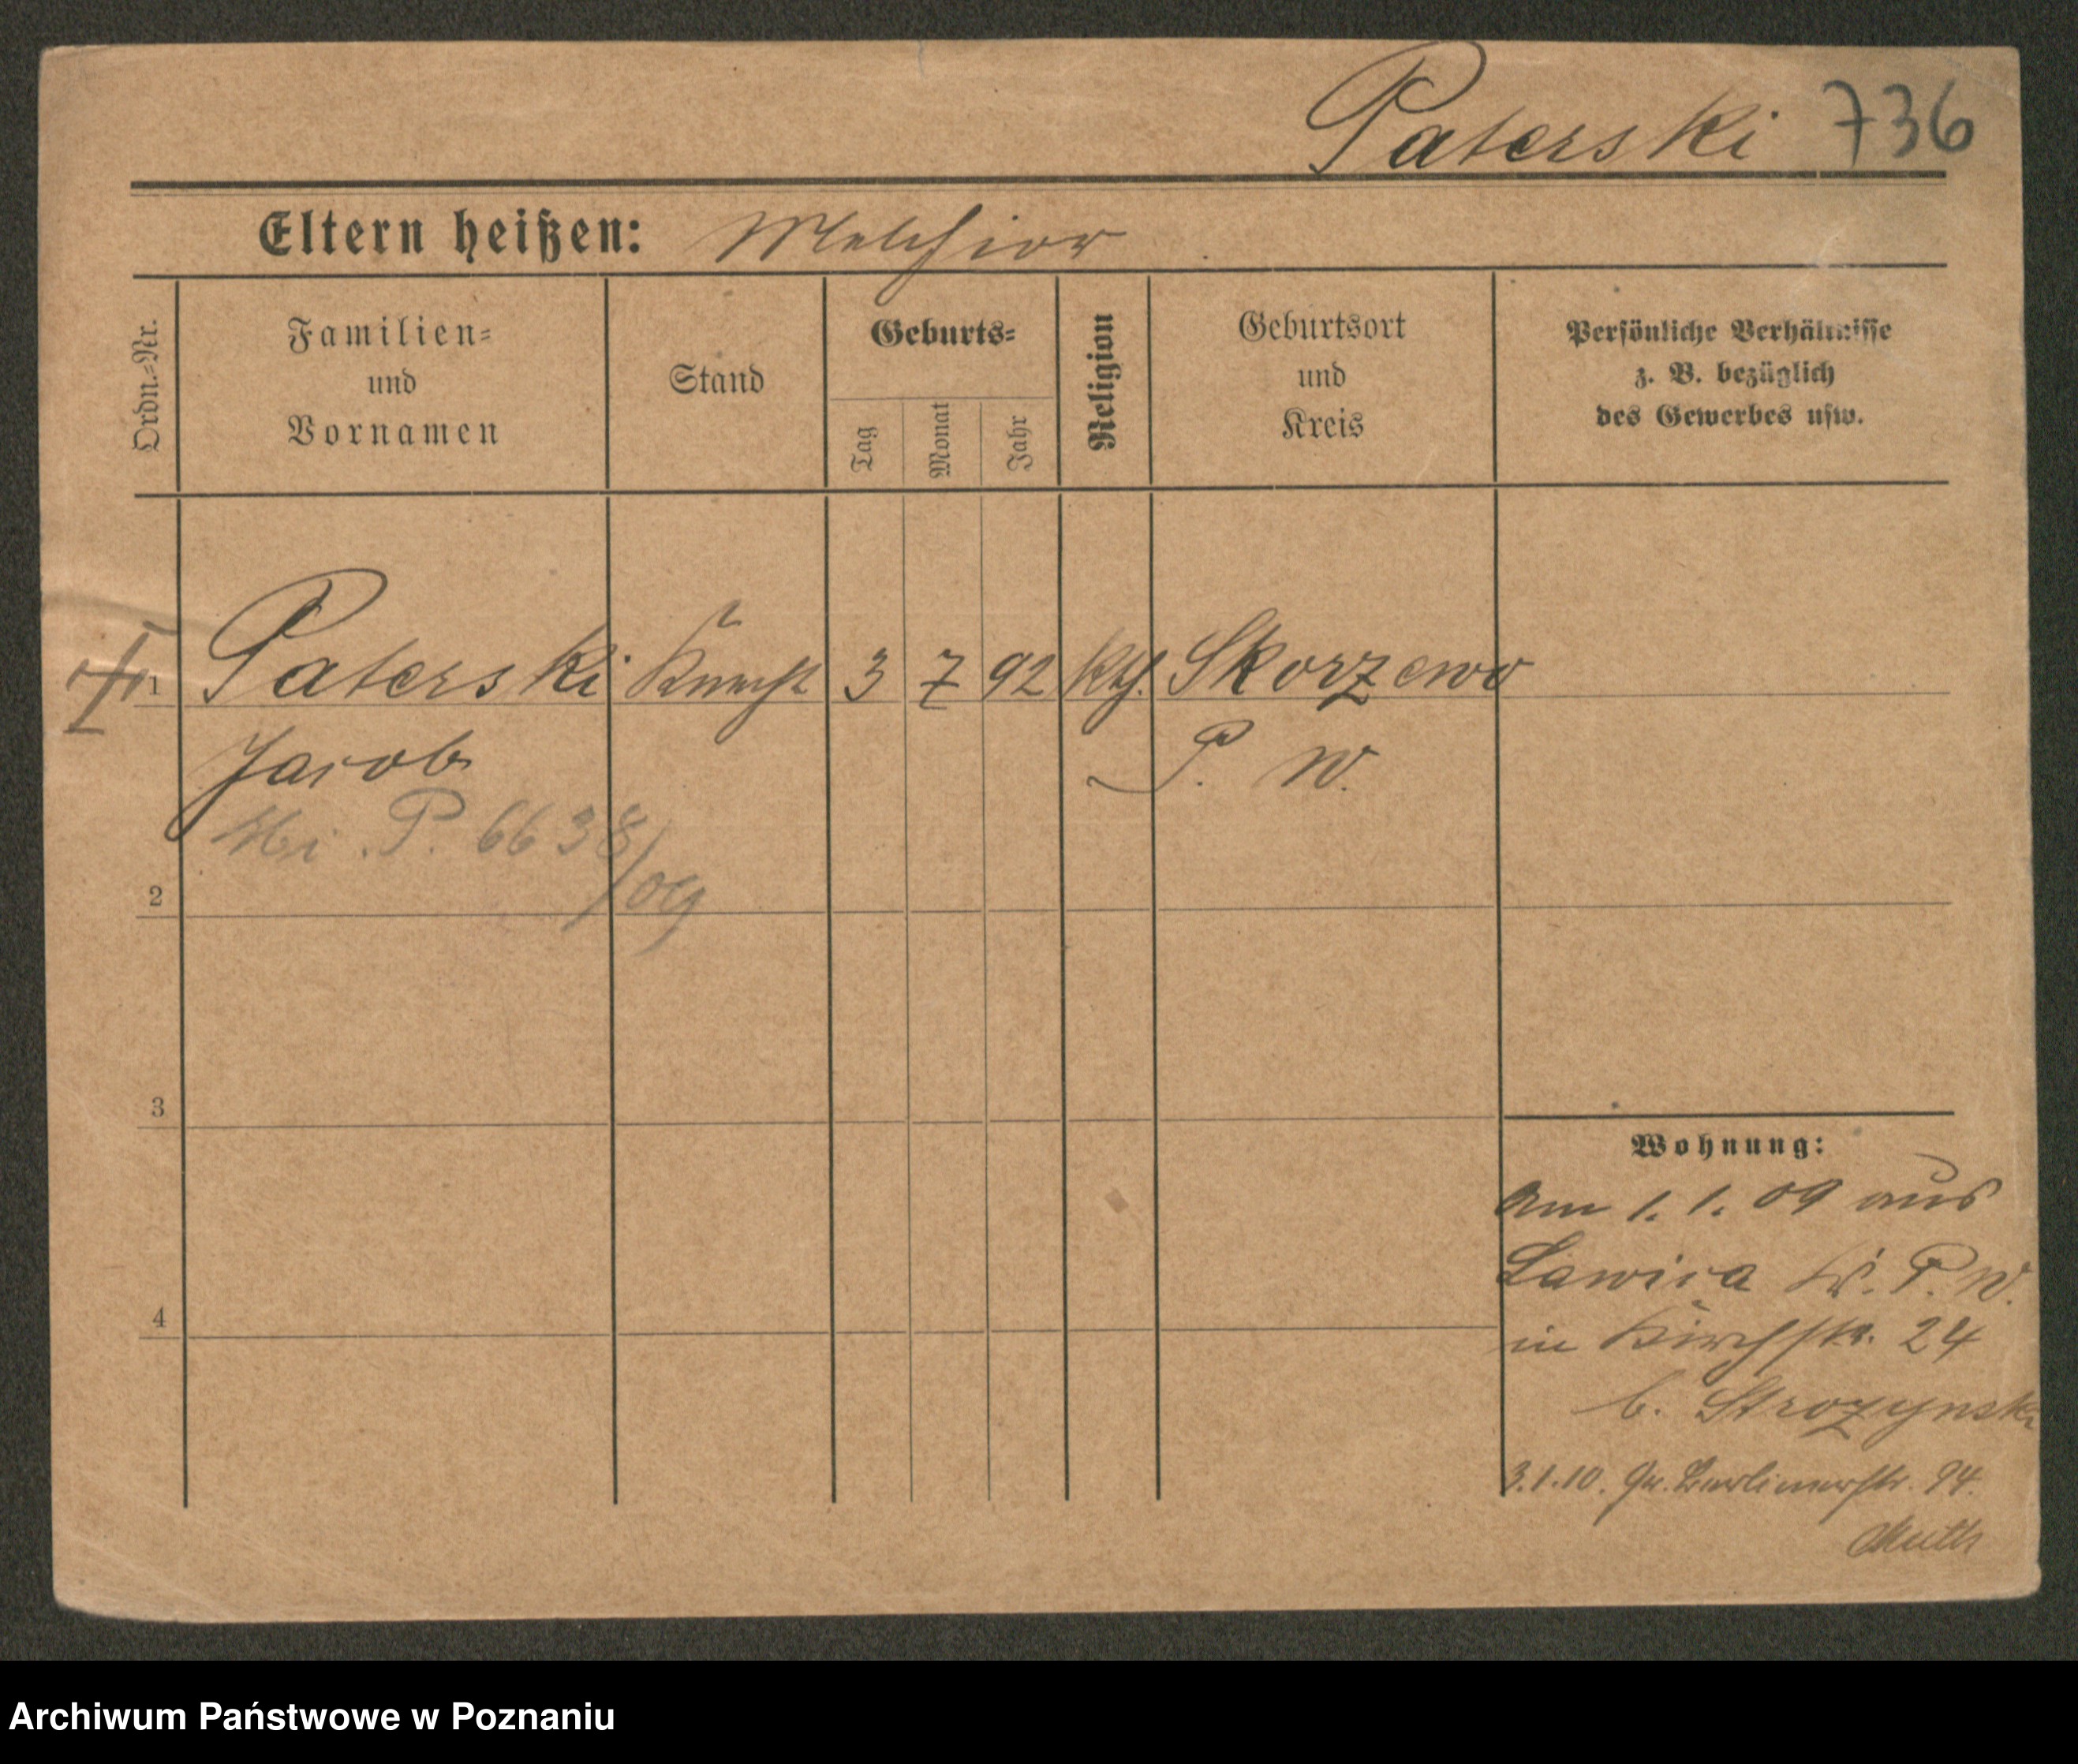 Paterski 736
Eltern heißen: Melchior
Ordn.-Nr.
Familien-
und
Vornamen
Stand
Geburts-
Tag
Monat
Jahr
Religion
Geburtsort
und
Kreis
Persönliche Verhältnisse
z. B. bezüglich
des Gewerbes usw.
1 Paterski Knecht 3 7 92 kth. Skorzewo
Jacob P. W.
P. 6638/09
2
3
4
Wohnung:
Am 1. 1. 09 aus
Lawica Kr. P. W.
in Kirchstr. 24
b. Strozynski
3.1.10. Gr. Berlinerstr. 94.
Muth
Archiwum Państwowe w Poznaniu